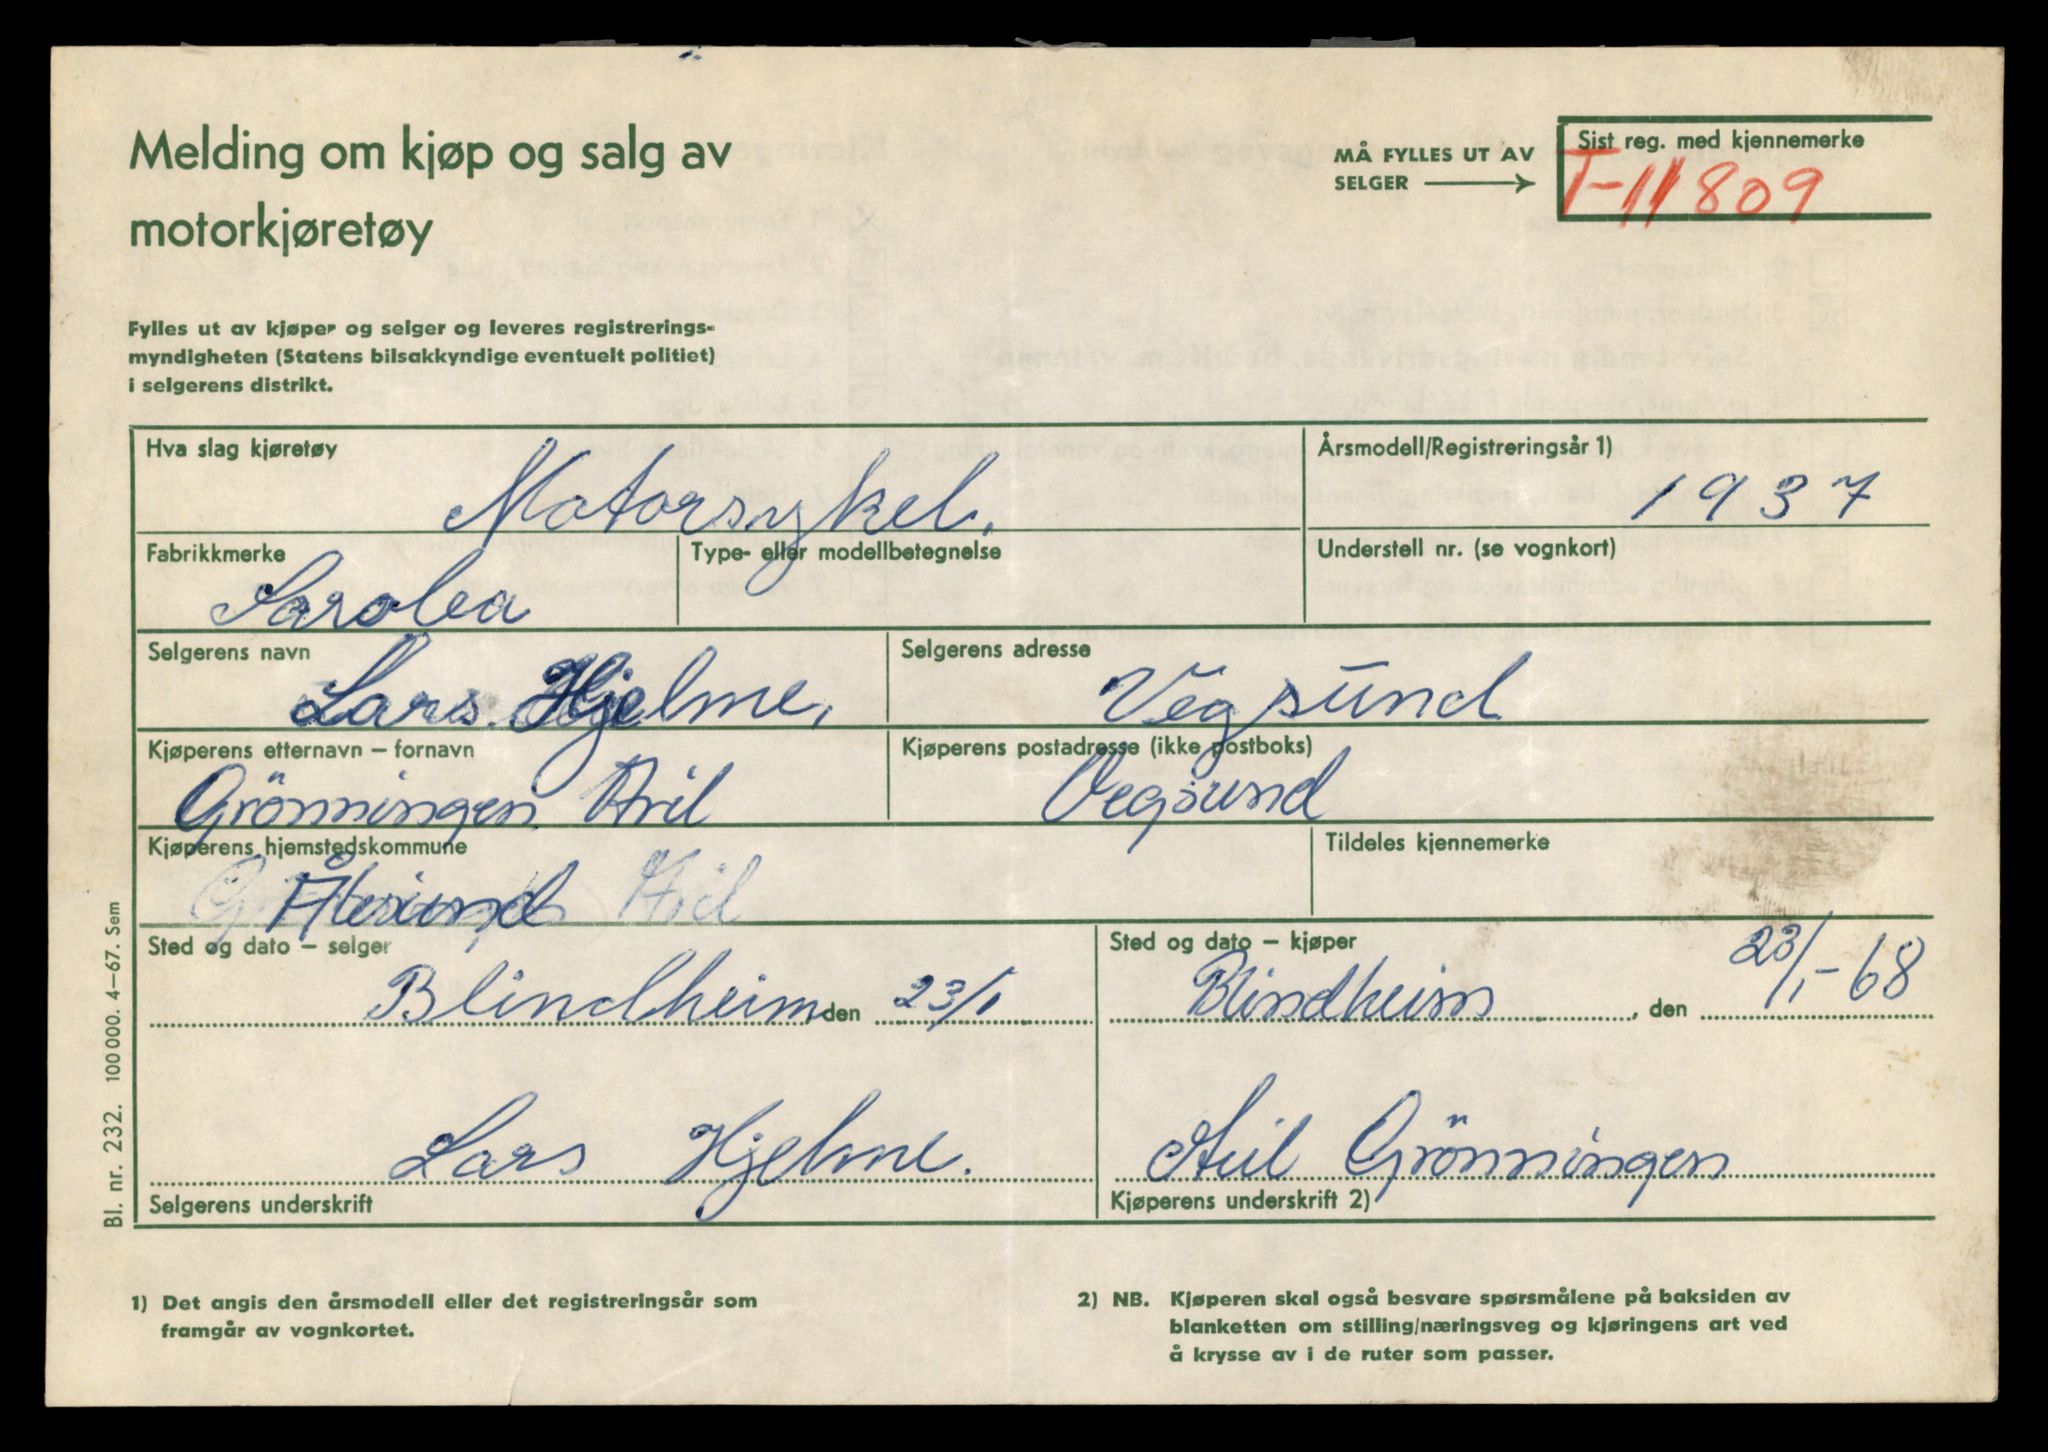 Melding om kjøp og salg av
motorkjøretøy
MÅ FYLLES UT AV
SELGER
Sist reg. med kjennemerke
T-11809
Fylles ut av kjøper og selger og leveres registrerings-
myndigheten (Statens bilsakkyndige eventuelt politiet)
i selgerens distrikt.
Hva slag kjøretøy
Motorsykel.
Årsmodell/Registreringsår 1)
1937
Fabrikkmerke
Sarolea
Type- eller modellbetegnelse
Understell nr. (se vognkort)
Selgerens navn
Lars Hjelme,
Selgerens adresse
Vegsund
Kjøperens etternavn – fornavn
Grönningen Aril
Kjøperens postadresse (ikke postboks)
Vegsund
Kjøperens hjemstedskommune
Ålesund
Tildeles kjennemerke
Sted og dato – selger
Blindheim, den 23/1
Sted og dato – kjøper
Blindheim, den 23/1-68
Lars Hjelme.
Selgerens underskrift
Aril Grönningen
Kjøperens underskrift 2)
Bl. nr. 232. 100 000. 4–67. Sem
1) Det angis den årsmodell eller det registreringsår som
framgår av vognkortet.
2) NB. Kjøperen skal også besvare spørsmålene på baksiden av
blanketten om stilling/næringsveg og kjøringens art ved
å krysse av i de ruter som passer.